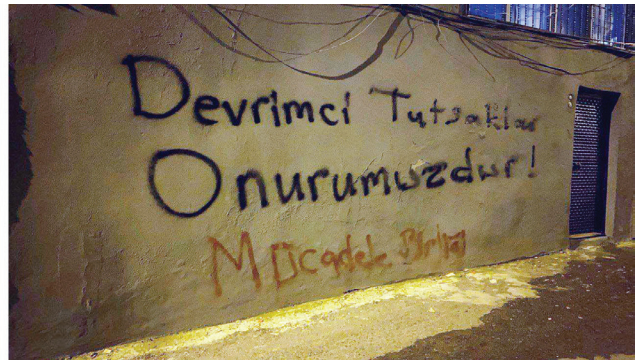 Devrimci Tutsaklar
Onurumuzdur!
Mücadele Birliği